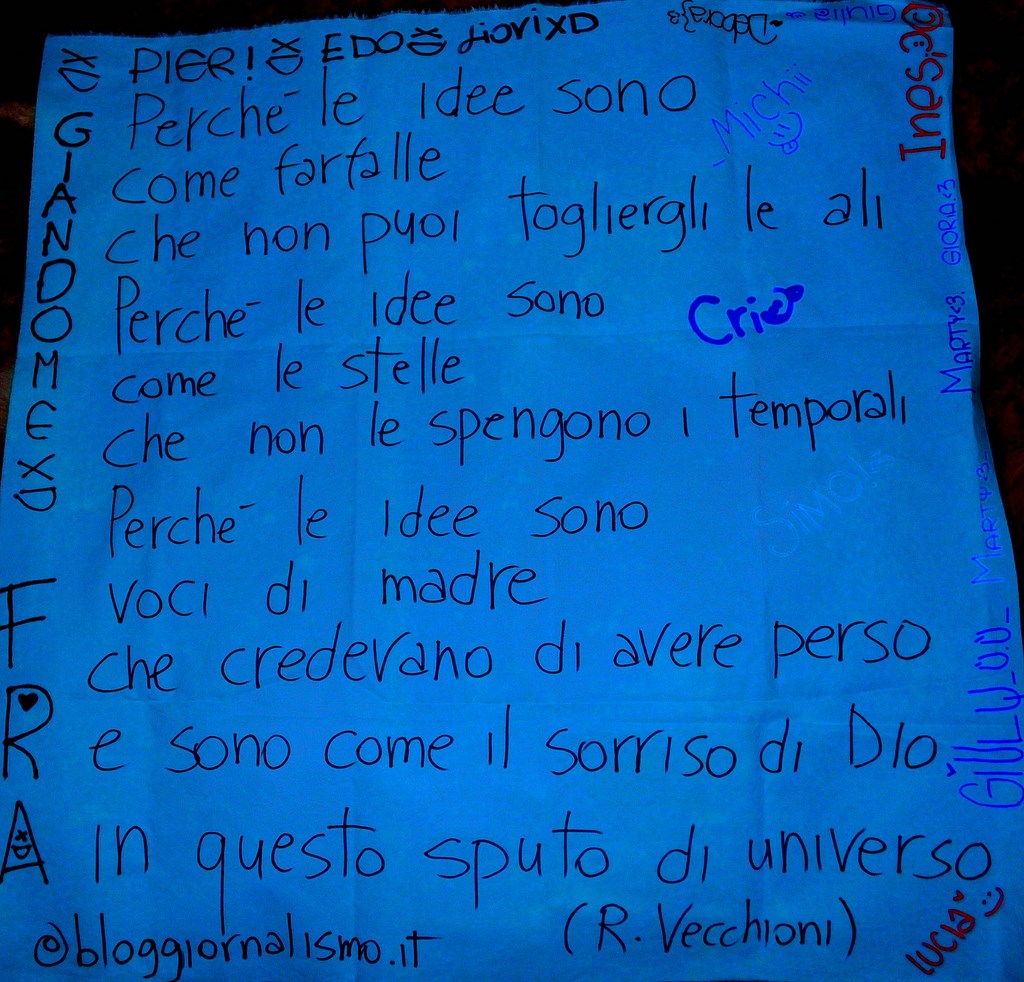 XD PIER! XD EDO XD GioviXD
Debora {3
Giulia
Ines;DC
GIANDOMEXD
Perché le idee sono
-Michii
come farfalle
che non puoi togliergli le ali
GIORIA<3
Perché le idee sono
Crie
MARTY<3.
come le stelle
che non le spengono i temporali
SIMO!<3
MARTY<3_
Perché le idee sono
voci di madre
che credevano di avere perso
GIULY_U.U_
FRA
e sono come il sorriso di DIO
in questo sputo di universo
LUCIA♥ :)
(R. Vecchioni)
@bloggiornalismo.it